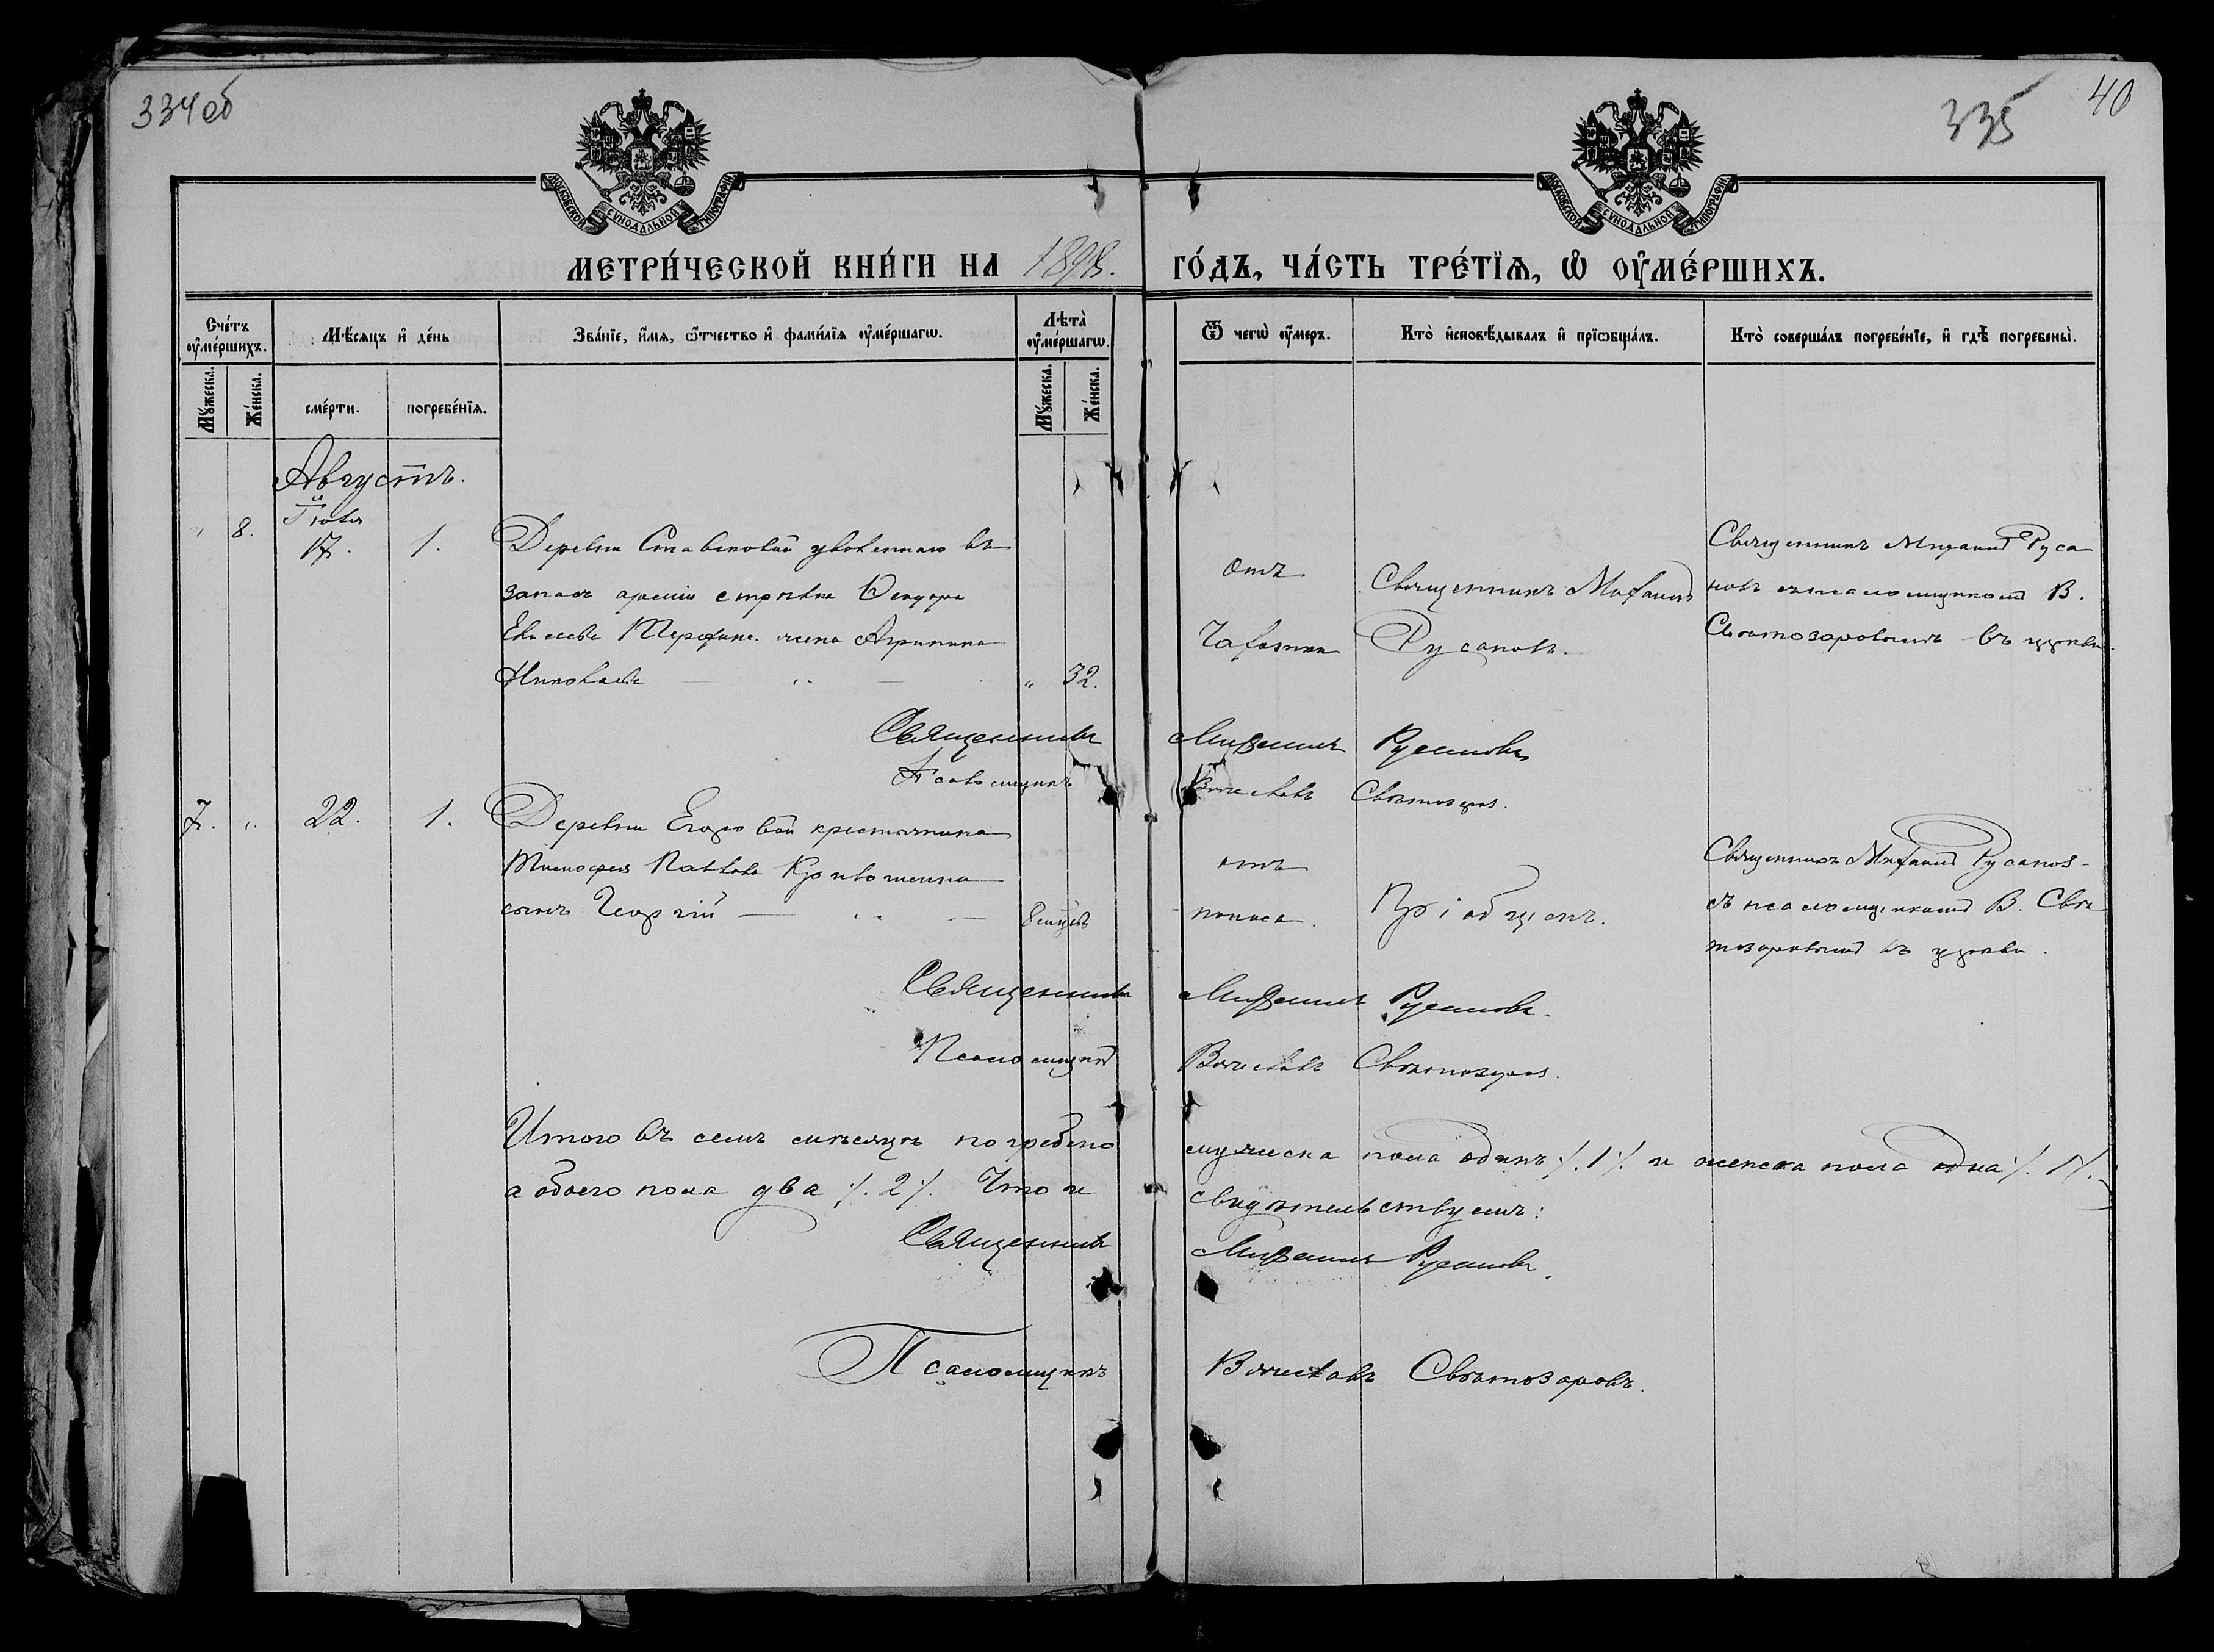 334 об
335
40
МОСКОВСКОЙ СѴНОДАЛЬНОЙ ТИПОГРАФІИ
МОСКОВСКОЙ СѴНОДАЛЬНОЙ ТИПОГРАФІИ
МЕТРИ́ЧЕСКОЙ КНИ́ГИ НА 1898. ГО́ДЪ, ЧА́СТЬ ТРЕ́ТЇѦ, Ѡ҆ ОУ҆МЕ́РШИХЪ.
Сче́тъ оу҆ме́ршихъ.
Мѣ́сѧцъ и҆ де́нь
Зва́нїе, и҆́мѧ, ѻ҆́тчество и҆ фами́лїѧ оу҆ме́ршагѡ.
Лѣ́та оу҆ме́ршагѡ.
Ѿ чегѡ̀ оу҆́меръ.
Кто̀ и҆сповѣ́дывалъ и҆ прїѡбща́лъ.
Кто̀ соверша́лъ погребе́нїе, и҆ гдѣ̀ погребены̀.
Мꙋ́жеска.
Же́нска.
сме́рти.
погребе́нїѧ.
Мꙋ́жеска.
Же́нска.
Августъ.
Іюля
„ 8. 17. 1. Деревни уволеннаго въ
запасъ арміи стрѣлка
жена Агрипина
„ 32.
отъ
Чахотки
Священникъ Михаилъ
Русановъ.
Священникъ Михаилъ Руса
новъ съ псаломщикомъ В.
Святозаровымъ въ церкви.
Священникъ Михаилъ Русановъ
Псаломщикъ Вячеславъ Святозаров.
7. „ 22. 1. Деревни Егоровой крестьянина
Тимофея Павлова
сынъ Георгій
8 мцевъ
отъ
поноса.
Пріобщенъ.
Священникъ Михаилъ Русанов-
съ псаломщикомъ В. Свя
тозаровымъ въ церкви.
Священникъ Михаилъ Русановъ.
Псаломщикъ Вячеславъ Святозаров.
Итого въ семъ мѣсяцѣ погребено мужеска пола одинъ ./.1./. и женска пола одна ./.1./.
а обоего пола два ./.2./. Что и свидѣтельствуемъ:
Священникъ Михаилъ Русановъ.
Псаломщикъ Вячеславъ Святозаровъ.